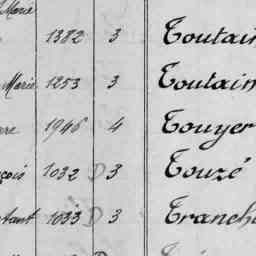 Marie
1382 3 Toutain
Marie 1253 3 Toutain
1946 4 Touyer
1032 D 3 Touzé
1033 D 3 Tranch